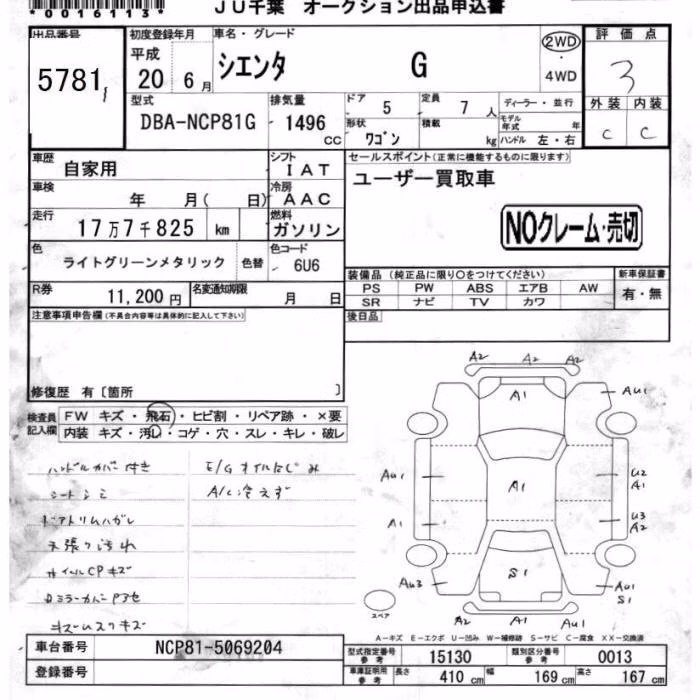 *0016113*
JU千葉 オークション出品申込書
出品番号 初度登録年月 車名・グレード 評価点
5781 平成 20 6月 シエンタ G 2WD 4WD 3
型式 排気量 ドア 5 定員 7人 ディーラー・並行 外装 内装
DBA-NCP81G 1496 CC 形状 ワゴン 積載 kg モデル年式 年 ハンドル 左・右 C C
車歴 自家用 シフト IAT セールスポイント(正常に機能するものに限ります)
車検 年 月( 日) 冷房 AAC ユーザー買取車
走行 17万7千825 km 燃料 ガソリン NOクレーム・売切
色 ライトグリーンメタリック 色替 色コード 6U6
装備品(純正品に限り○をつけてください) 新車保証書
R券 11,200円 名変通知期限 月 日 PS PW ABS エアB AW 有・無
SR ナビ TV カワ
注意事項申告欄(不具合内容等は具体的に記入して下さい) 後日品
修復歴 有〔箇所 〕
検査員記入欄 FW キズ・飛石・ヒビ割・リペア跡・×要
内装 キズ・汚れ・コゲ・穴・スレ・キレ・破レ
ハンドルカバー付き E/Gオイルにじみ
シートシミ A/C冷えず
ドアトリムハガレ
天張り汚れ
ホイルCPキズ
Dミラーカバー
A2 A2 A2
A1 AU1
AU1 A1 U2 A1
A1 U3 A2
AU3 S1 AU1 S1
A2 A1 AU1
スペア
A-キズ E-エクボ U-凹み W-補修跡 S-サビ C-腐食 XX-交換済
車台番号 NCP81-5069204 型式指定番号 参考 15130 類別区分番号 参考 0013
登録番号 車庫証明用 参考 長さ 410 cm 幅 169 cm 高さ 167 cm